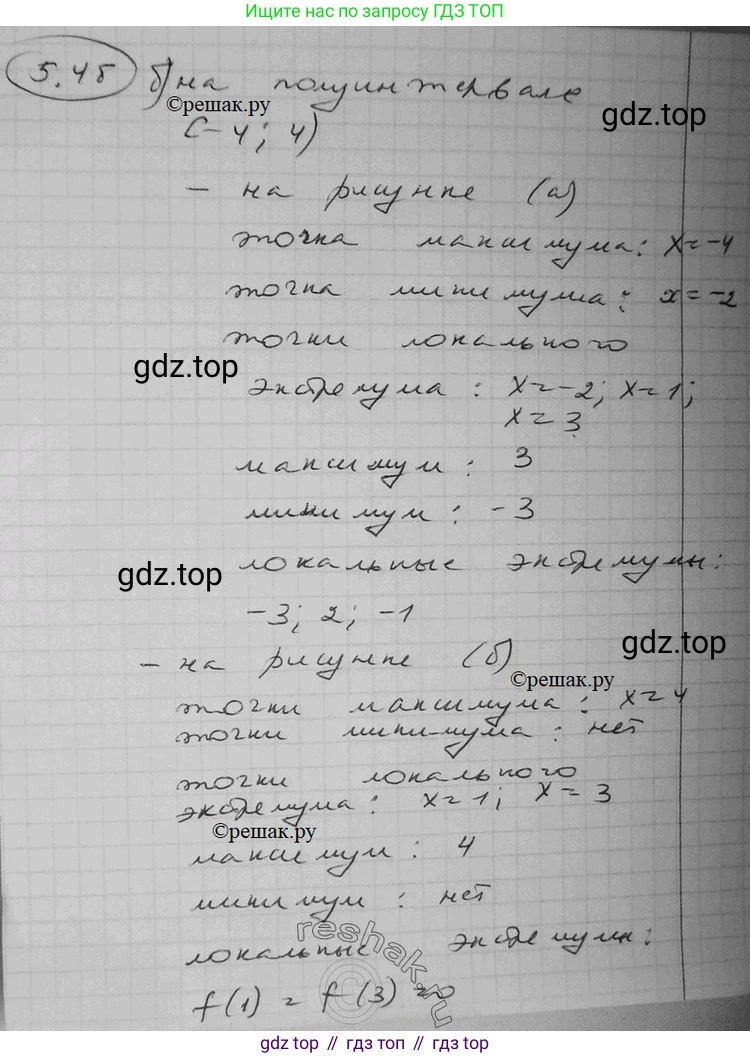 Ищите нас по запросу ГДЗ ТОП
5.45 б) на полуинтервале
©решак.ру
gdz.top
[-4; 4)
- на рисунке (а)
точка максимума: x=-4
точка минимума: x=-2
точки локального
gdz.top
экстремума: x=-2; x=1;
x=3
максимум: 3
минимум: -3
локальные экстремумы:
gdz.top
-3; 2; -1
gdz.top
- на рисунке (б)
©решак.ру
точки максимума: x=4
точки минимума: нет
точки локального
экстремума: x=1; x=3
©решак.ру
максимум: 4
минимум: нет
локальные экстремумы:
reshak.ru
f(1) = f(3) =0
gdz.top // гдз.топ // gdz.top